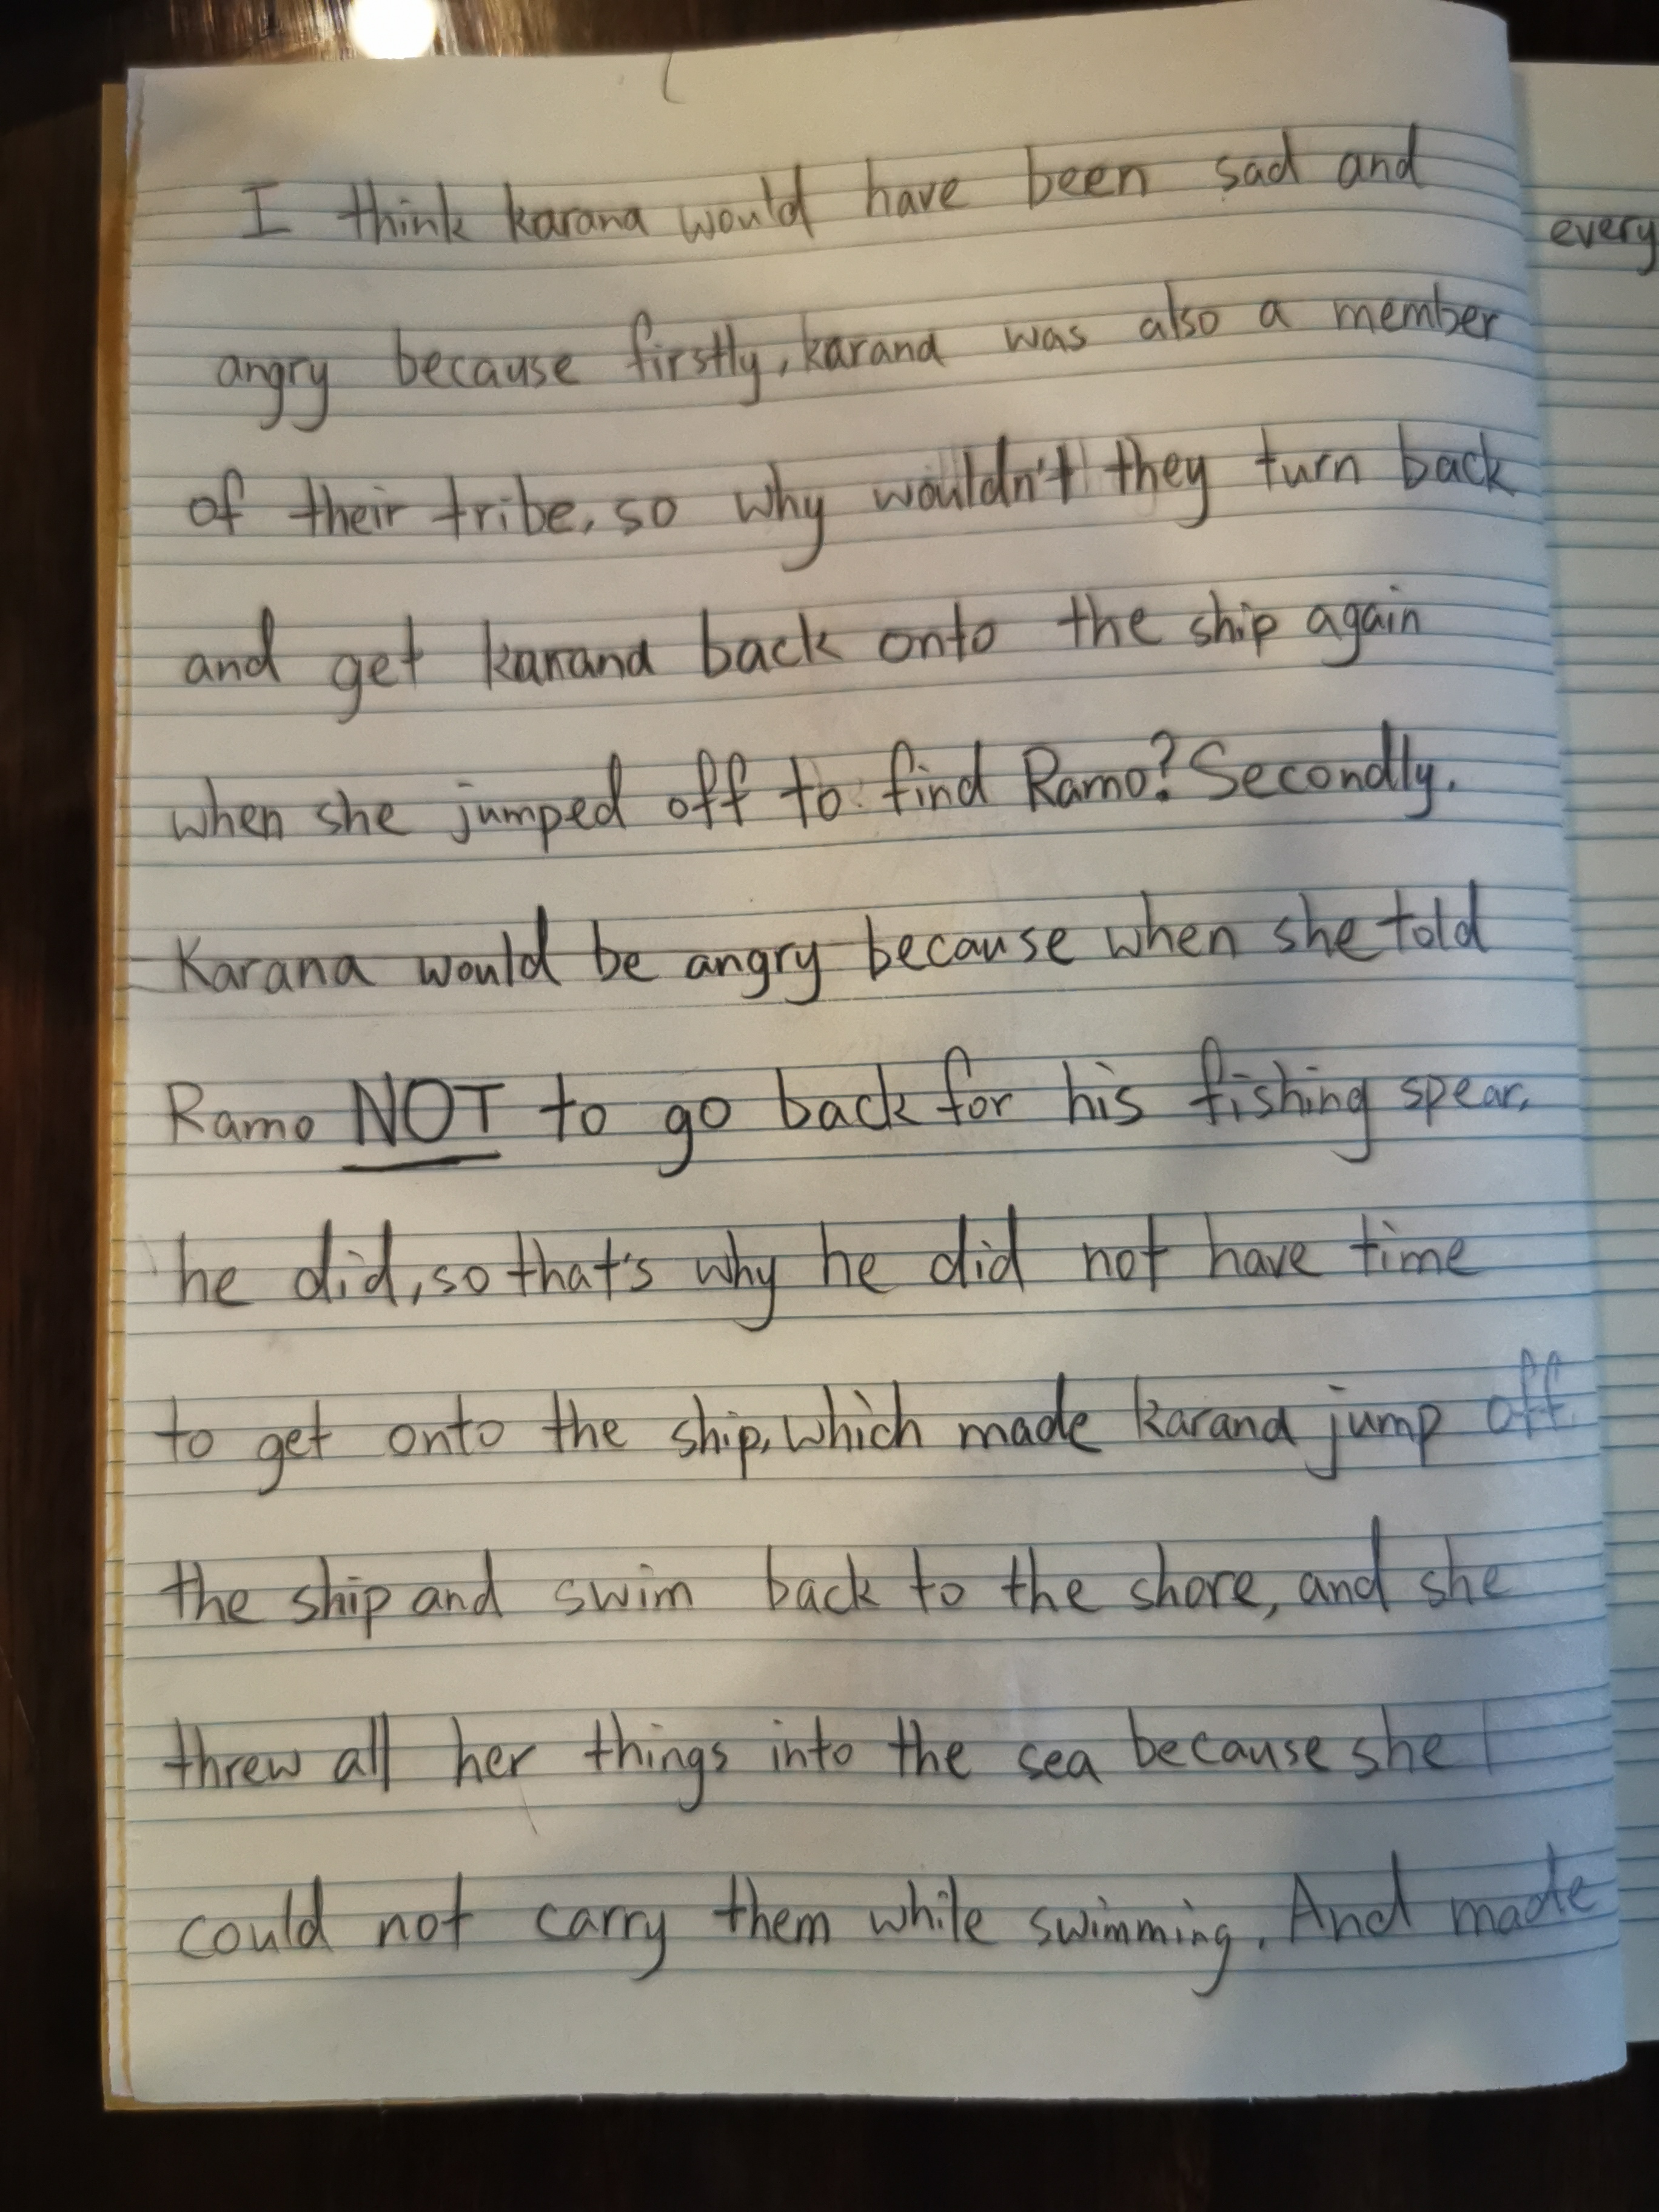 I think karana would have been sad and
angry because firstly, karana was also a member
of their tribe, so why wouldn't they turn back
and get karana back onto the ship again
when she jumped off to find Ramo? Secondly,
Karana would be angry because when she told
Ramo NOT to go back for his fishing spear,
he did, so that's why he did not have time
to get onto the ship, which made karana jump off
the ship and swim back to the shore, and she
threw all her things into the sea because she
could not carry them while swimming. And made
every